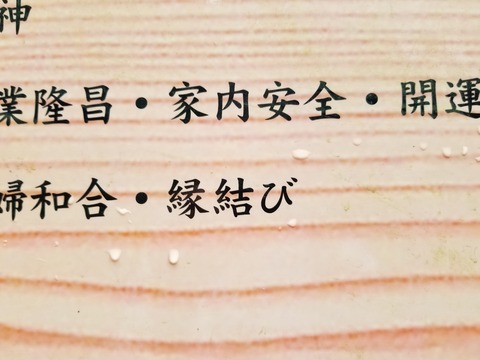 神
業隆昌・家内安全・開運
婦和合・縁結び